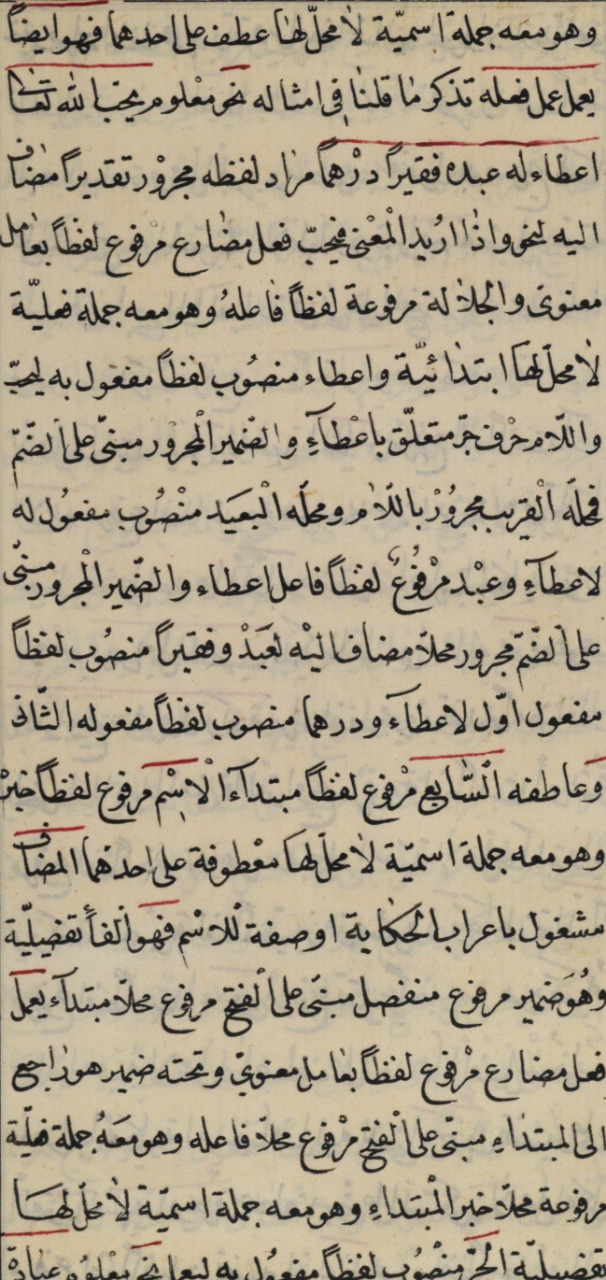 وهو معه جملة اسميّة لا محلّ لها عطف على احدهما فهو ايضاً
يعمل عمل فعله تذكر ما قلنا في امثاله نحو معلوم يحبّ الله تعالى
اعطاء له عبده فقيراً درهماً مراد لفظه مجرور تقديراً مضاف
اليه لنحو واذا اريد المعنى فيحبّ فعل مضارع مرفوع لفظاً بعامل
معنوى والجلالة مرفوعة لفظاً فاعله وهو معه جملة فعليّة
لا محلّ لها ابتدائيّة واعطاء منصوب لفظاً مفعول به ليحبّ
واللّام حرف جرّ متعلّق باعطاء والضمير المجرور مبنىّ على الضّمّ
فمحلّه القريب مجرور باللّام ومحلّه البعيد منصوب مفعول له
لاعطاء وعبد مرفوع لفظاً فاعل اعطاء والضّمير المجرور مبنىّ
على الضّمّ مجرور محلّا مضاف اليه لعبد وفقيراً منصوب لفظاً
مفعول اوّل لاعطاء ودرهما منصوب لفظاً مفعوله الثّانى
وعاطفه السّابع مرفوع لفظاً مبتداء الاسم مرفوع لفظاً خبر
وهو معه جملة اسميّة لا محلّ لها معطوفة على احدهما المضاف
مشغول باعراب الحكاية او صفة للاسم فهو الفاء تفضيليّة
وهو ضمير مرفوع منفصل مبنىّ على الفتح مرفوع محلّا مبتداء يعمل
فعل مضارع مرفوع لفظاً بعامل معنوىّ وتحته ضمير هو راجع
الى المبتداء مبنىّ على الفتح مرفوع محلّا فاعله وهو معه جملة فعليّة
مرفوعة محلّا خبر المبتداء وهو معه جملة اسميّة لا محلّ لها
تفضيليّة الجرّ منصوب لفظاً مفعول به ليعمل نحو معلوم